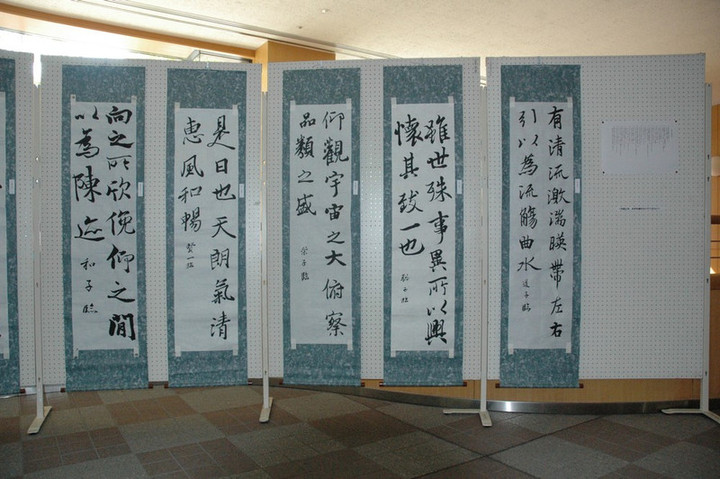 有清流激湍暎帶左右
引以為流觴曲水
雖世殊事異所以興
懷其致一也
仰觀宇宙之大俯察
品類之盛
是日也天朗氣清
惠風和暢
向之所欣俛仰之間
以為陳迹
和子臨